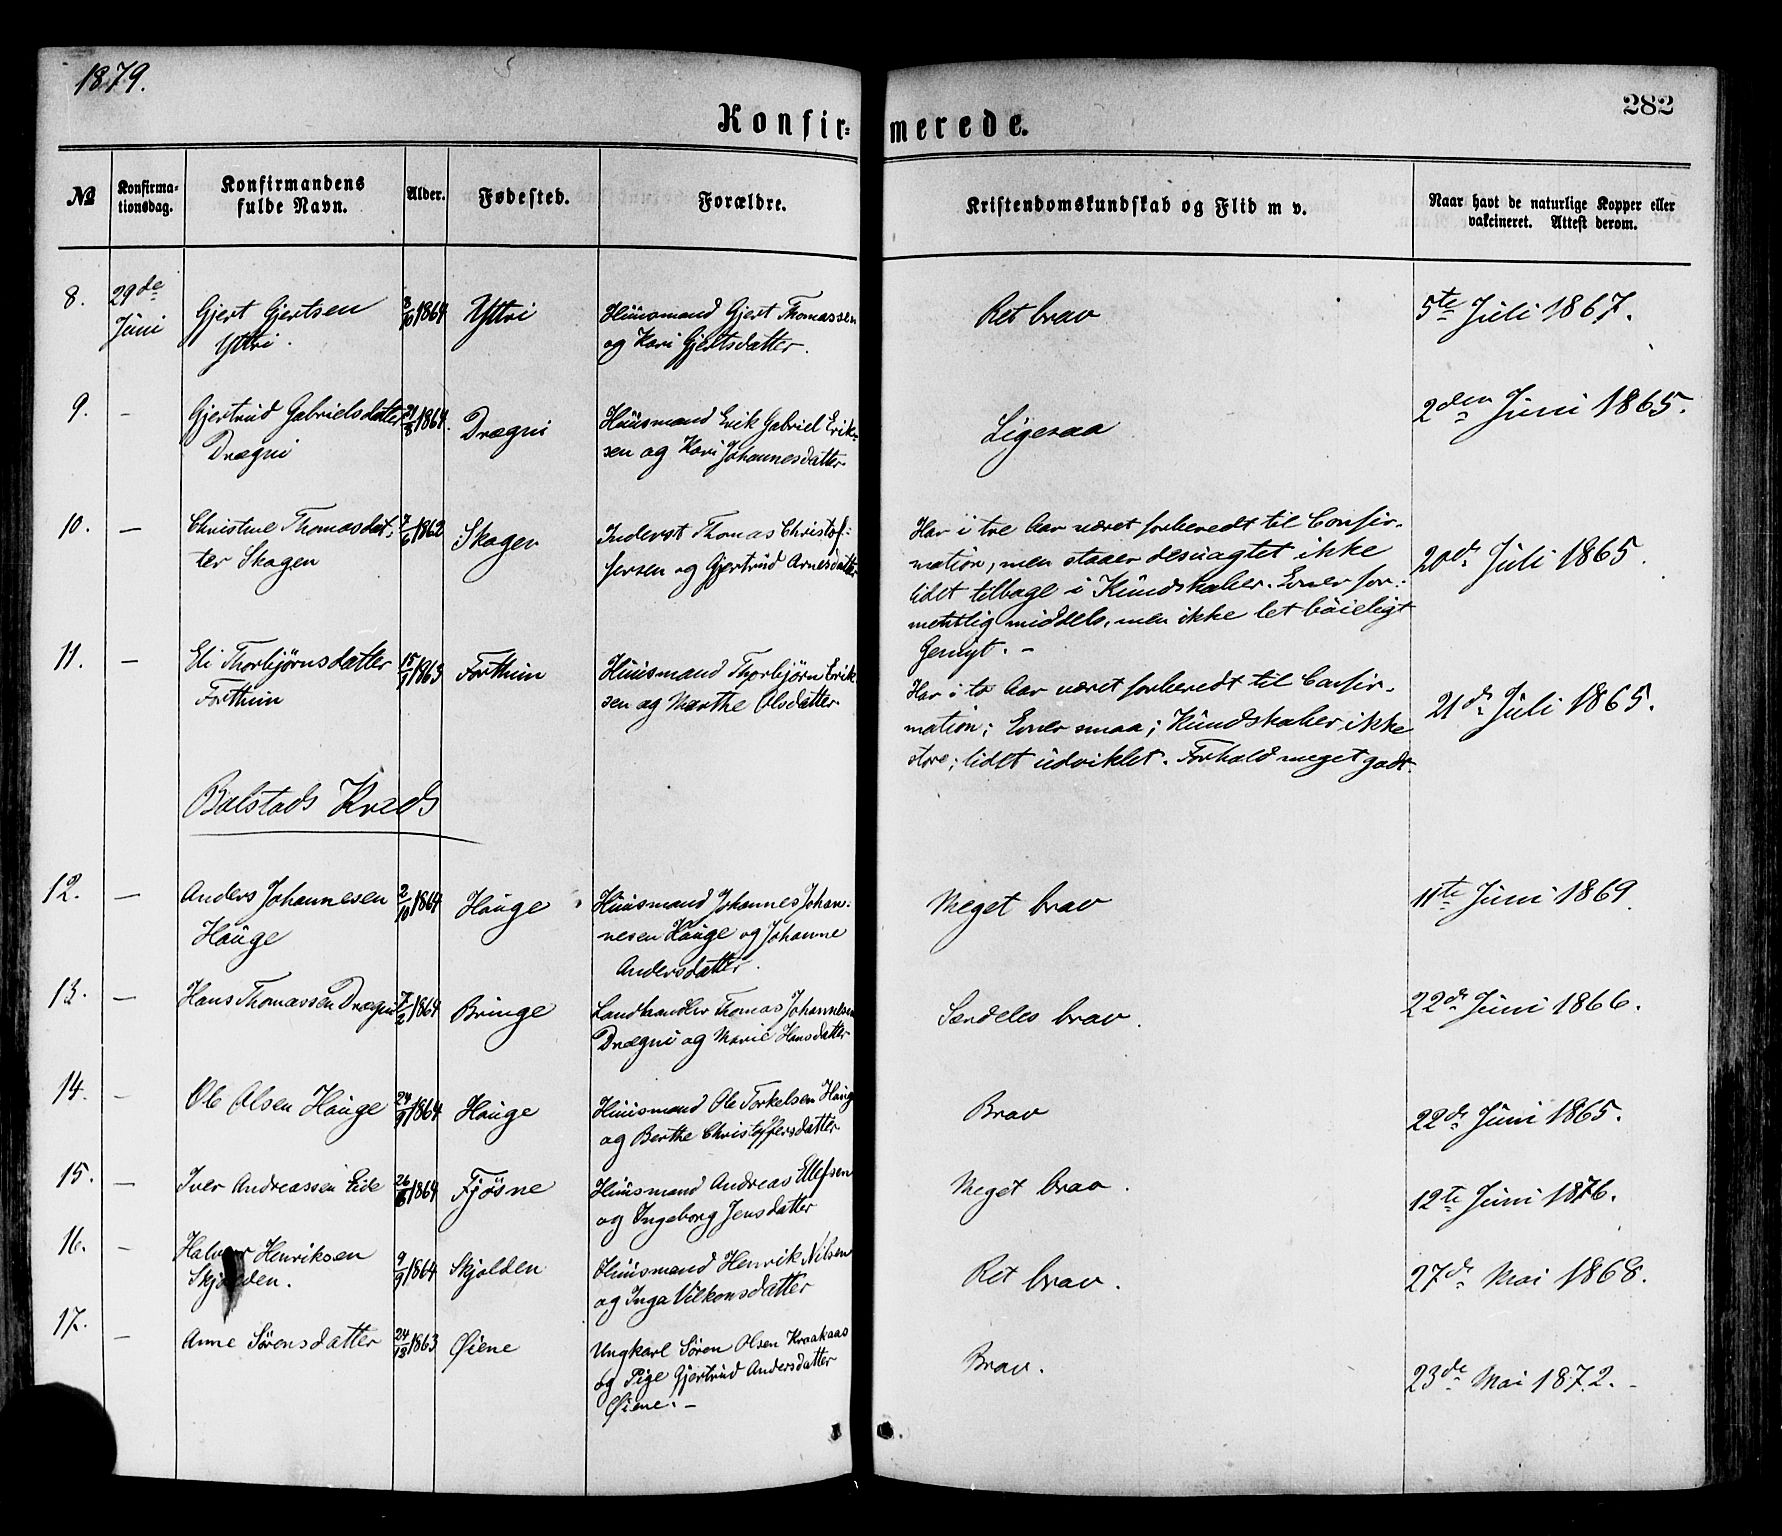 1879.
282
Konfir=merede.
№ Konfirma-tionsdag. Konfirmandens fulde Navn. Alder. Fødested. Forældre. Kristendomskundskab og Flid m v. Naar havt de naturlige Kopper eller vakcineret. Attest derom.
8. 29de Gjert Gjertsen 3/10 1864 Yttri Huusmand Gjert Thomassen Ret brav 5te Juli 1867.
Juni Yttri. og Kari Gjertsdatter.
9. - Gjertrud Gabrielsdatter 21/8 1864. Drægni Huusmand Erik Gabriel Erik- Ligesaa 2den Juni 1865.
Drægni sen og Kari Johannesdatter
10. - Christine Thomasdat- 7/6 1862 Skagen Inderst Thomas Christof- Har i tre Aar været forberedt til Confir-
ter Skagen fersen og Gjertrud Arnesdatter mation, men staaer desuagtet ikke 20de Juli 1865.
lidet tilbage i Kundskaber. Evner for-
mentlig middels, men ikke let bøieligt
Gemyt. -
11. - Eli Thorbjørnsdatter 15/9 1863 Forthun Huusmand Thorbjørn Erik- Har i to Aar været forberedt til Confir-
Forthun sen og Marthe Olsdatter mation; Evner smaa; Kundskaber ikke 21de Juli 1865.
store; lidet udviklet. Forhold meget godt.
Bolstads Kreds
12. - Anders Johannesen 2/10 1864 Hauge Huusmand Johannes Johan- Meget brav 11te Juni 1869.
Hauge nesen Hauge og Johanne
Andersdatter.
13. - Hans Thomassen Drægni 7/2 1864 Bringe Landhandler Thomas Johannesen Særdeles brav. 22de Juni 1866.
Drægni og Marie Hansdatter
14. - Ole Olsen Hauge 24/9 1864 Hauge Huusmand Ole Torkelsen Hauge Brav 22de Juni 1865.
og Berthe Christoffersdatter
15. - Iver Andreassen Eide 26/8 1864 Fjøsne Huusmand Andreas Ellefsen Meget brav. 12te Juni 1876.
og Ingeborg Jensdatter
16. - Halvor Henriksen 9/9 1864 Skjolden Huusmand Henrik Nilsen Ret brav. 27de Mai 1868.
Skjolden. og Inga Vilkonsdatter
17. - Anne Sørensdatter 24/12 1863 Øiene Ungkarl Søren Olsen Kraakaas Brav. 23de Mai 1872. -
og Pige Gjertrud Andersdatter
Øiene. -